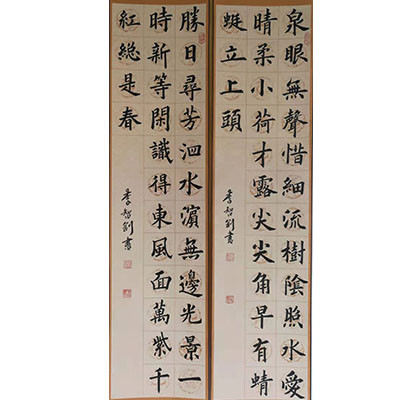 泉眼無聲惜細流樹陰照水愛
晴柔小荷才露尖尖角早有蜻
蜓立上頭
書
勝日尋芳泗水濱無邊光景一
時新等閑識得東風面萬紫千
紅總是春
書